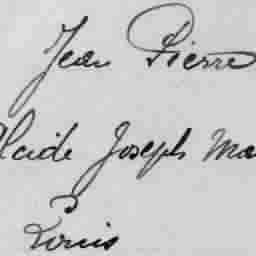 Jean Pierre
lcide Joseph Ma
Louis